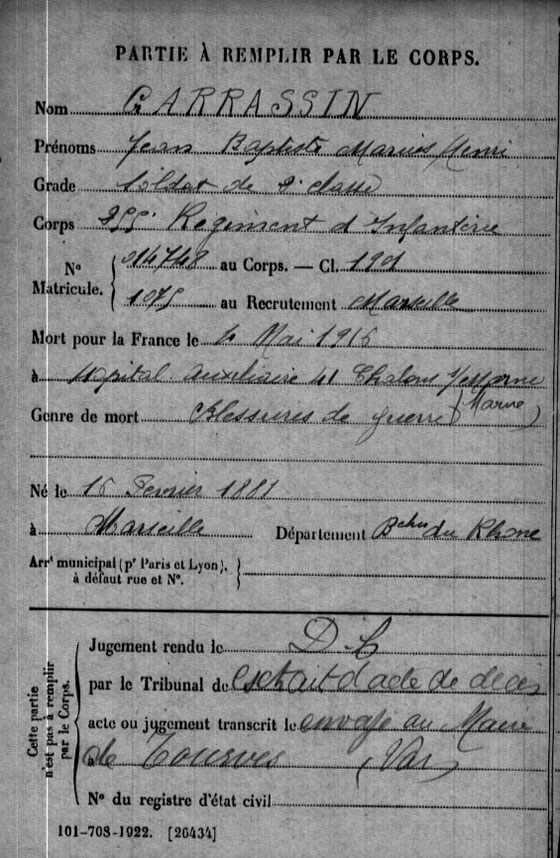 PARTIE À REMPLIR PAR LE CORPS.
Nom GARRASSIN
Prénoms Jean Baptiste Marius Henri
Grade Soldat de 2e classe
Corps 255e Regiment d'Infanterie
No Matricule. { 014748 au Corps. — Cl. 1901
1075 au Recrutement Marseille
Mort pour la France le Mai 1916
à Hopital Auxiliaire 41 Chalons s/ Marne
(Marne)
Genre de mort Blessures de guerre
Né le Fevrier 1881
à Marseille Département Bches du Rhone
Arrt municipal (pr Paris et Lyon), à défaut rue et No. }
Cette partie n'est pas à remplir par le Corps.
Jugement rendu le
par le Tribunal de Extrait d'acte de deces
acte ou jugement transcrit le envoyé au Maire
à de Tourves (Var)
No du registre d'état civil
101-708-1922. [26434]